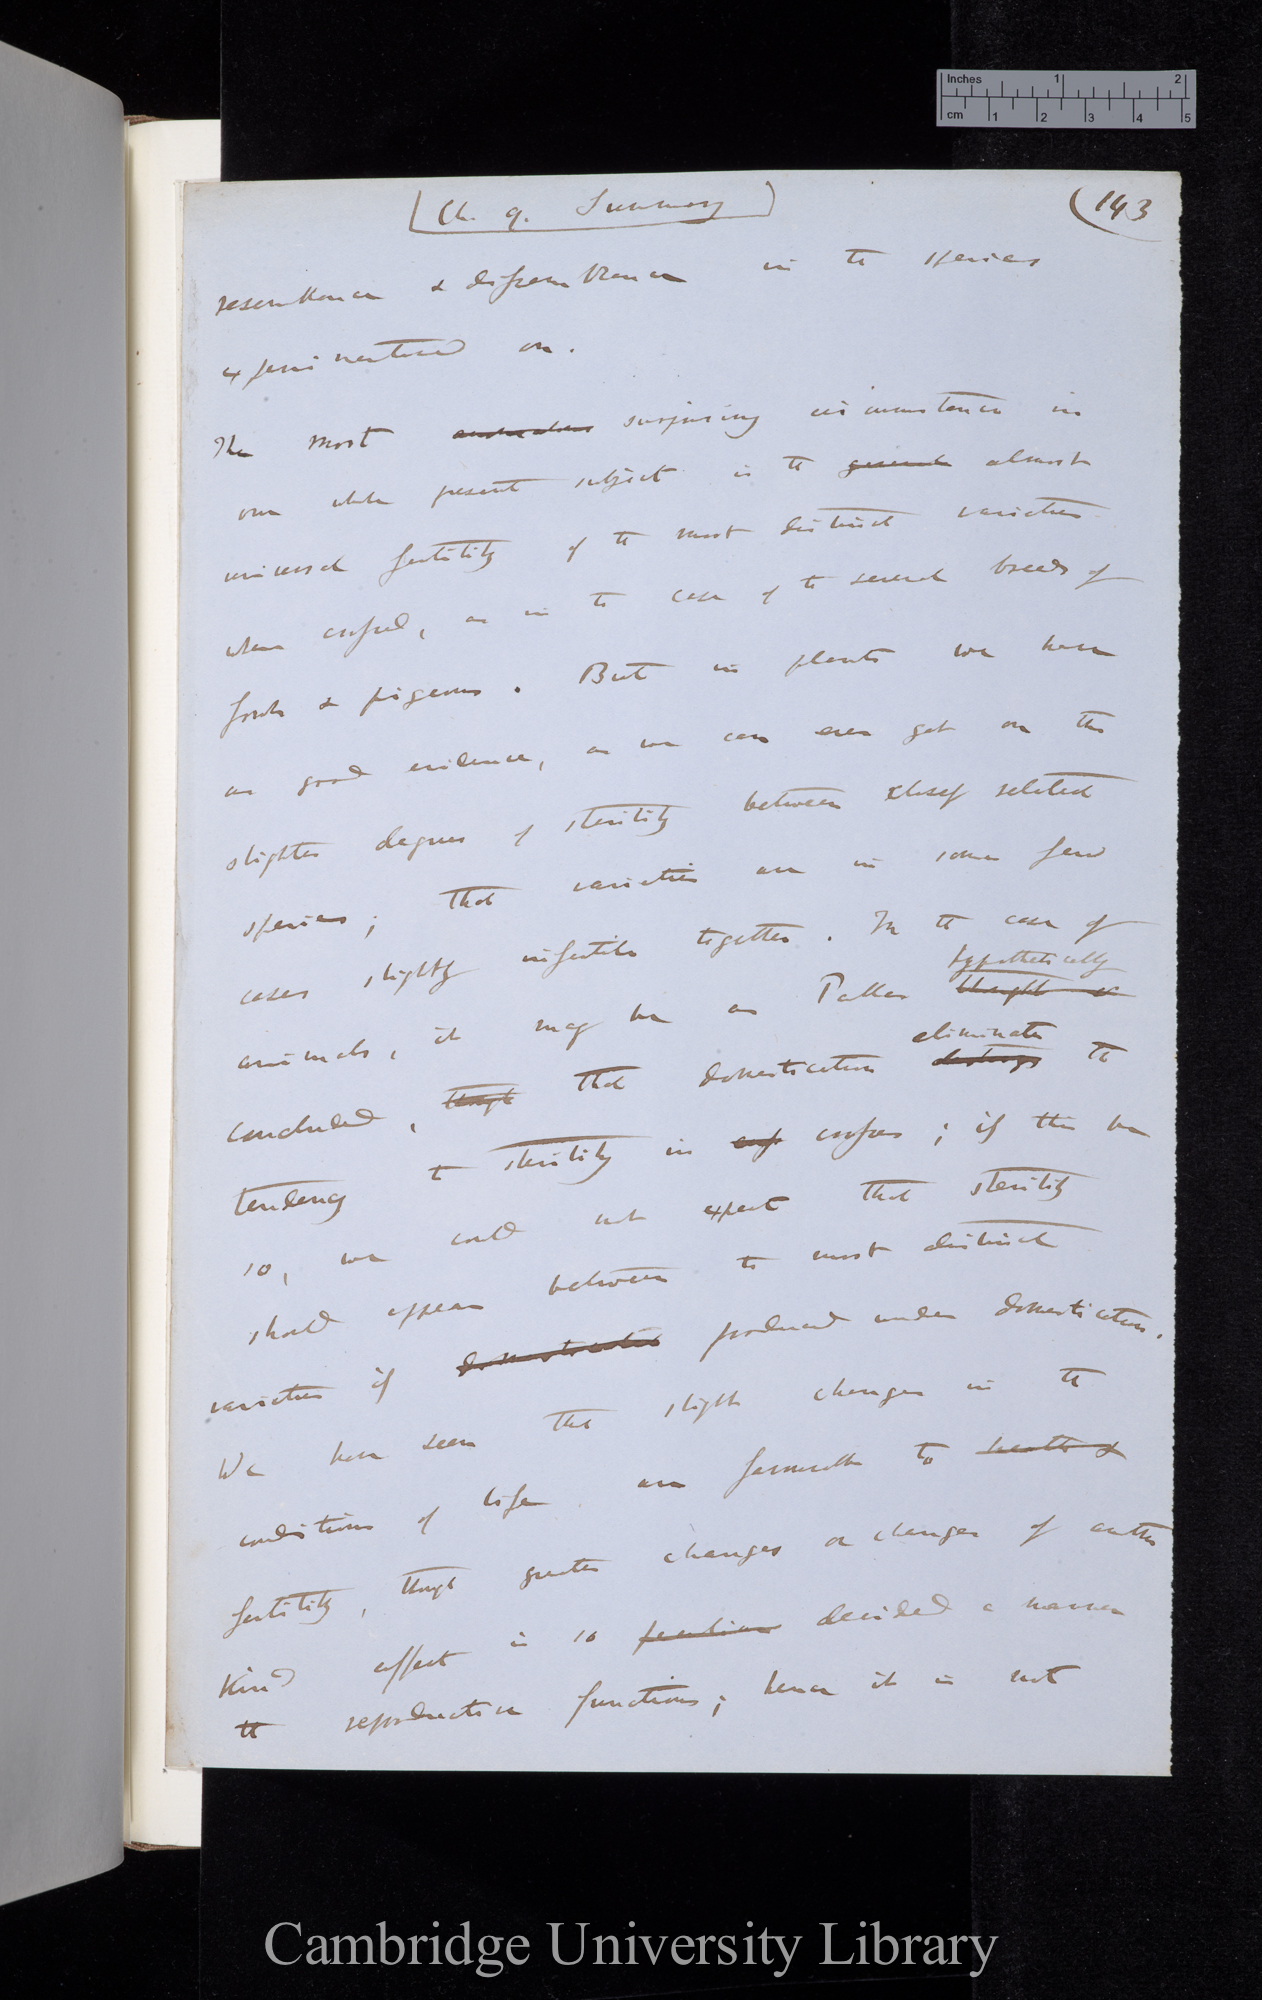 Inches 1 2
cm 1 2 3 4 5
Ch. 9. Summary
143
resemblance & dissemblance in the species
experimentised on.
The most surprising circumstance in
our whole present subject is the general almost
universal fertility of the most distinct varieties
when crossed, as in the case of the several breeds of
fowls & pigeons. But in plants we have
as good evidence, as we can ever get on the
slighter degrees of sterility between closely related
species; that varieties are in some few
cases slightly infertile together. In the case of
hypothetically
animals, it may be as Pallas thought is
eliminates
concluded, though that domestication destroys the
tendency to sterility in crosses; if this be
so, we could not expect that sterility
should appear between the most distinct
varieties if domesticated produced under domestication.
We have seen that slight changes in the
conditions of life are favourable to health &
fertility, though greater changes or changes of another
kind affect in so peculiar decided a manner
the reproductive functions; hence it is not
Cambridge University Library